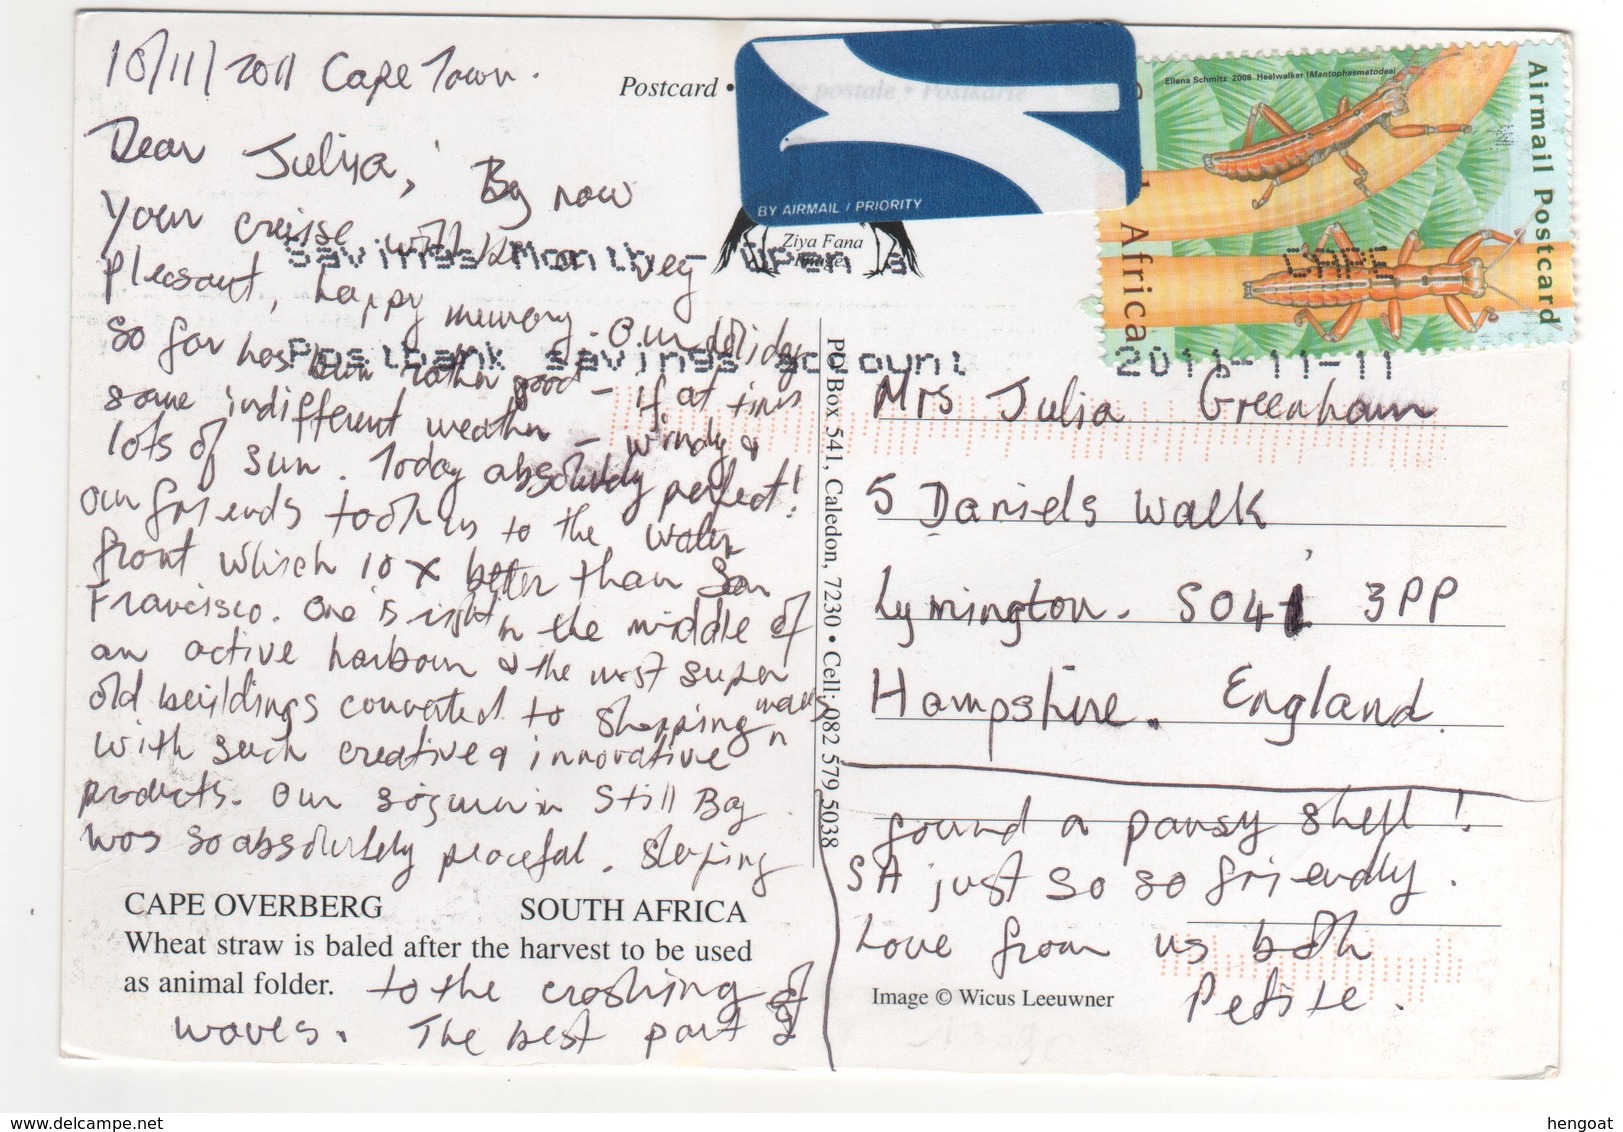 10/11/2011 Cape Town.
Dear Juliya, By now
your cruise will be a very
pleasant, happy memory. Our holiday
so far has been rather good - if at times
some indifferent weather - windy &
lots of sun. Today absolutely perfect!
our friends took us to the water
front which 10 x better than San
Francisco. One is right in the middle of
an active harbour & the most super
old buildings converted to shopping malls
with such creative & innovative
products. Our sojourn in Still Bay
was so absolutely peaceful. Sleeping
CAPE OVERBERG SOUTH AFRICA
Wheat straw is baled after the harvest to be used
as animal folder.
to the crashing of
waves. The best part I
found a pansy shell!
SA just so so friendly.
Love from us both
Image © Wicus Leeuwner
Postcard •
BY AIRMAIL / PRIORITY
Ziya Fana
Images
Savings Month - Open a
Postbank savings account
2011-11-11
CAPE
Ellena Schmitz 2008 Heelwalker (Mantophasmatodea)
Africa
Airmail Postcard
PO Box 541, Caledon, 7230 • Cell: 082 579 5038
Mrs Julia Greenham
5 Daniels Walk
Lymington. SO41 3PP
Hampshire. England
hengoat